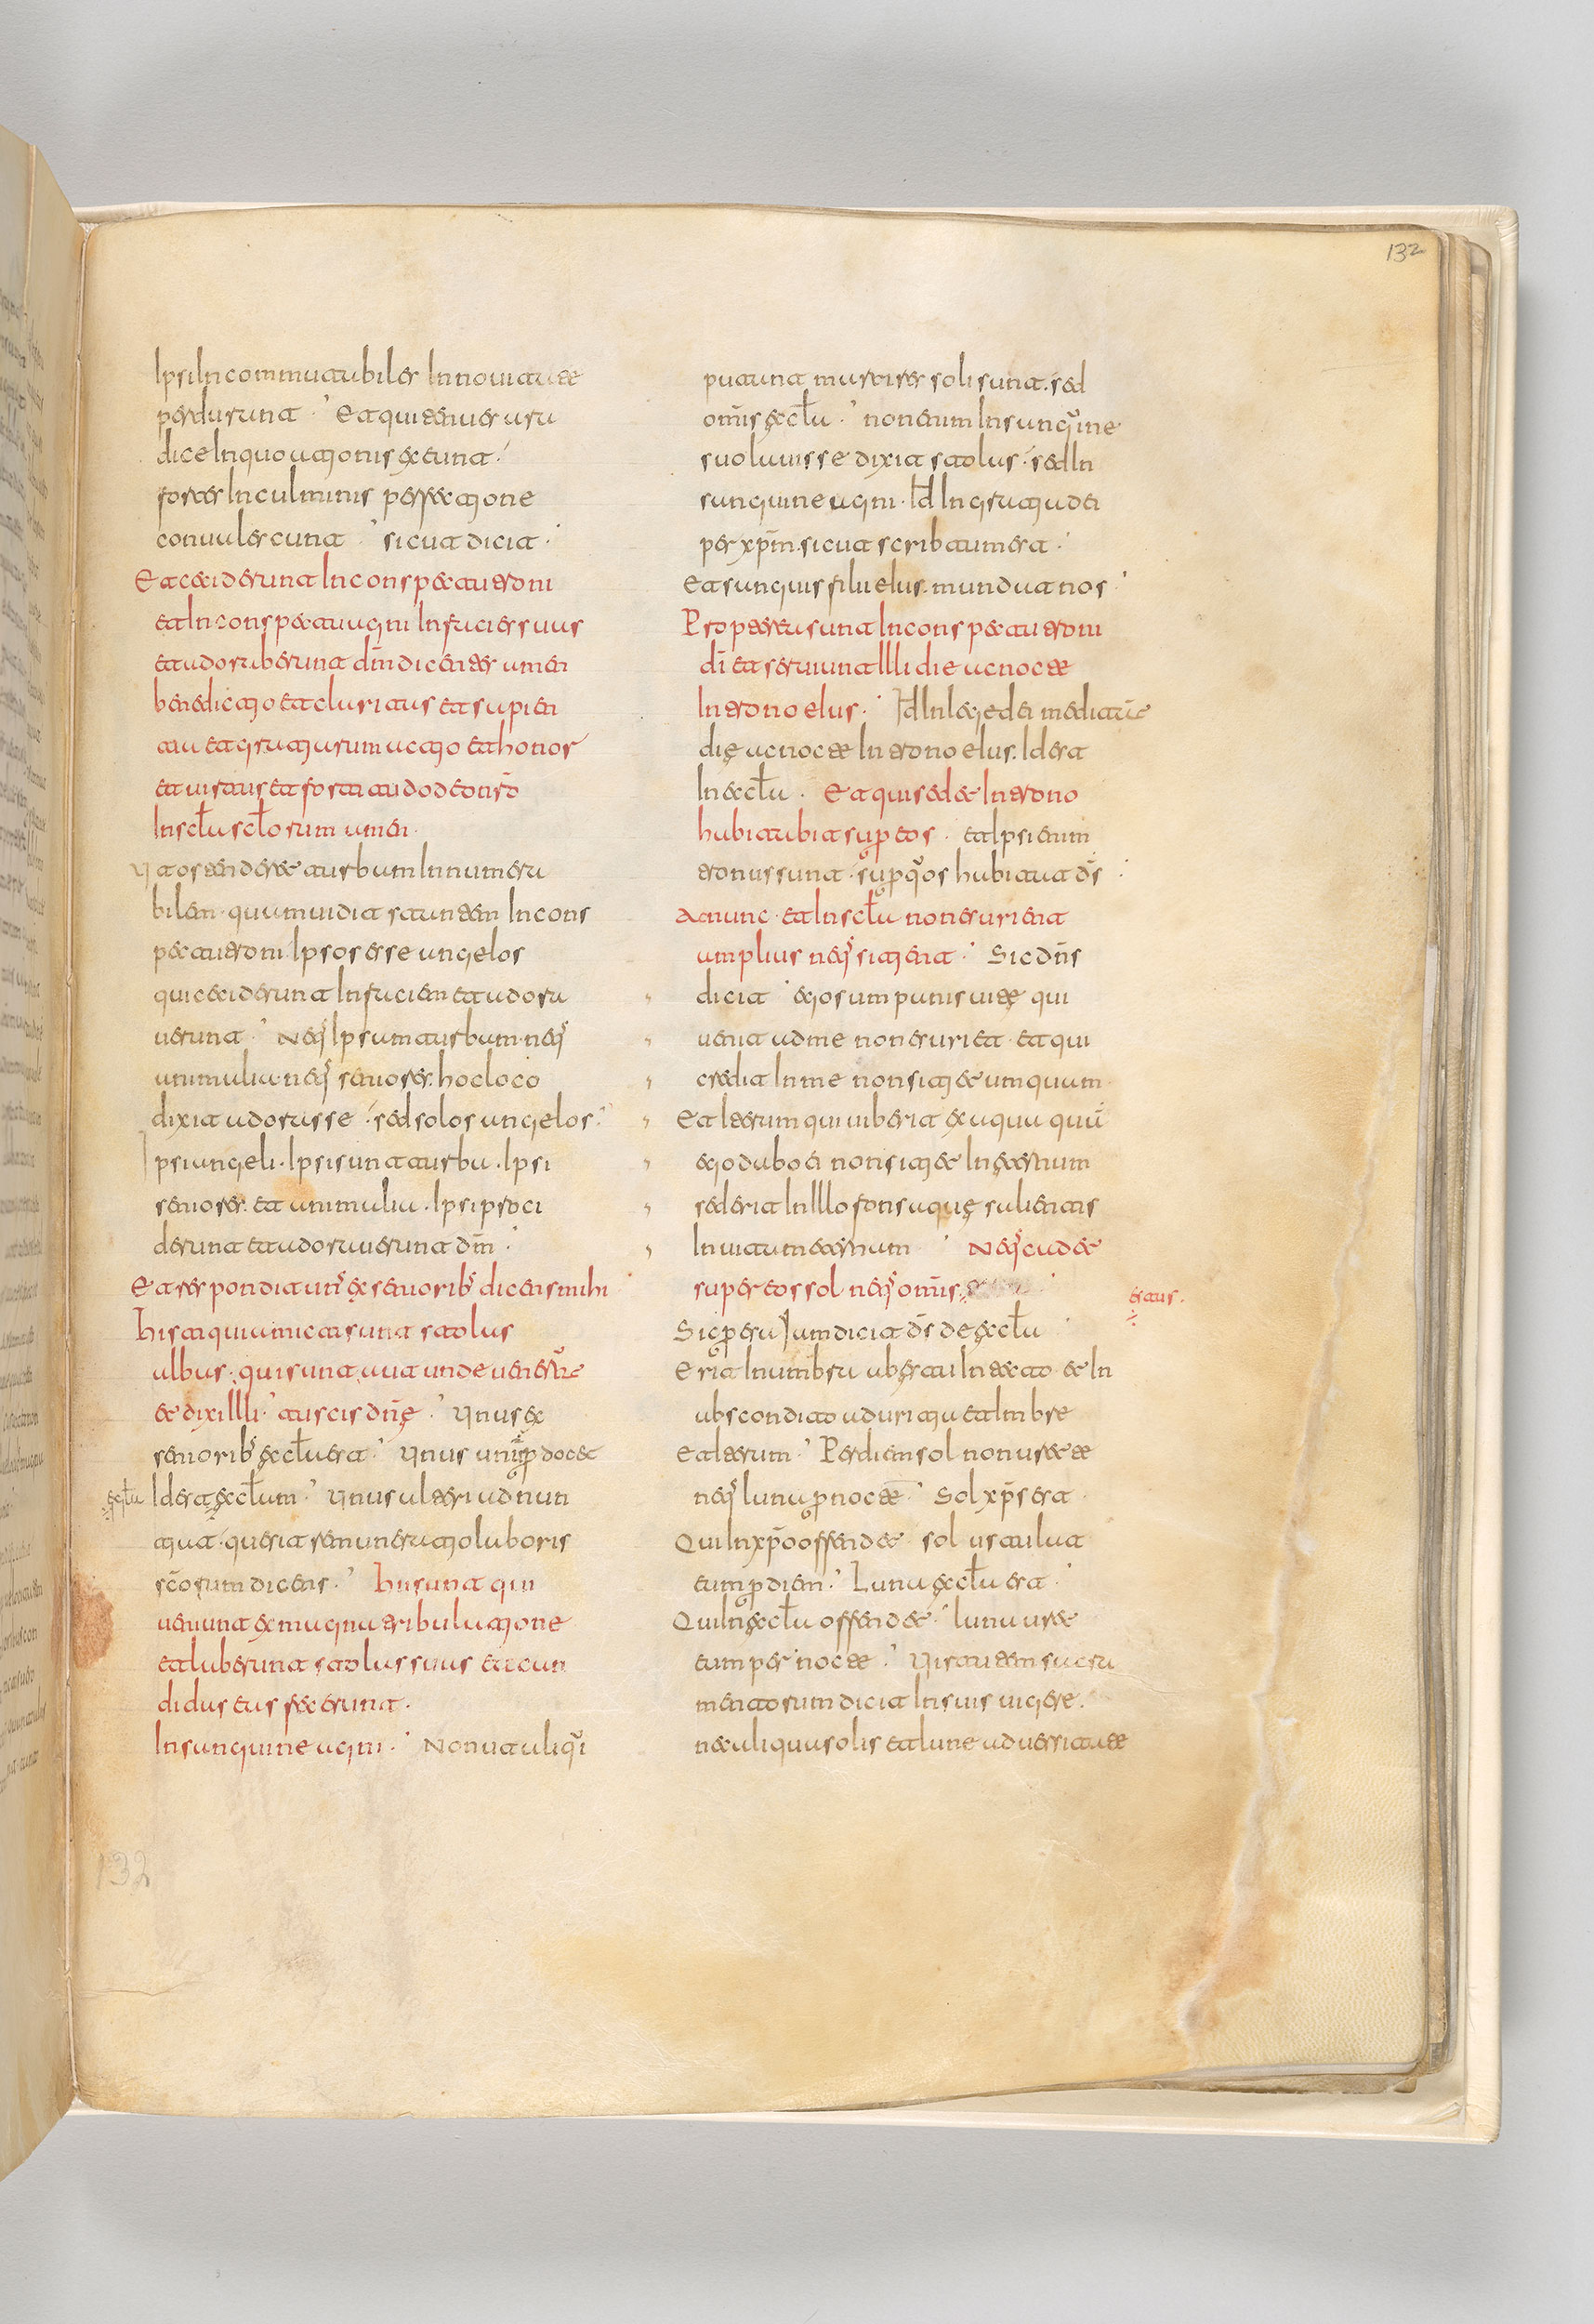 Ipsi Incommutabiles In nouitate
perdurant. Et qui tenues a ra
dice Inquoationis extant.
fortes In culminis perfectione
conualescunt. sicut dicit.
Et ceciderunt In conspectu troni
et In conspectu agni In facies suas
et adoraberunt dm̄ dicentes amen
benedictio et claritas et sapien
tia et gratiarum actio et honor
et uirtus et fortitudo deo nsō
In scl̄a scl̄orum amen.
Ut ostenderet turbam Innumera
bilem. quum uidit stantem In cons
pectu troni. Ipsos esse angelos
qui ceciderunt In faciem et adora
uerunt. Neq; Ipsam turbam. neq;
animalia. neq; seniores. hoc loco
dixit adorasse. sed solos angelos.
Ipsi angeli. Ipsi sunt turba. Ipsi
seniores. et animalia. Ipsi proci
derunt et adorauerunt dm̄.
Et respondit un; ex seniorib; dicens mihi
Hii sti qui amicti sunt stolas
albas. qui sunt. aut unde uenerūt
et dixi Illi. tu scis dn̄e. Unus ex
seniorib; eccl̄a est. Unus animal docet
eccl̄a
Id est eccl̄am. Unus alteri adnun
tiat. quesit remunerationem laboris
scōrum dicens. Hii sunt qui
ueniunt ex magna tribulatione
et laberunt stolas suas et can
didas eas fecerunt.
In sanguine agni. Non ut aliqui
putant martires soli sunt. sed
om̄is eccl̄a. non enim In sanguine
suo lauisse dixit stolas. sed In
sanguine agni. Id In gratia dei
per xp̄m. sicut scribtum est.
Et sanguis filii eius. mundat nos.
Propterea sunt In conspectu troni
dī et seruiunt Illi die ac nocte
In trono eius. Id In lege dei meditatū
die ac nocte In trono eius. Id est
In eccl̄a. Et qui sedet In trono
habitabit super eos. et Ipsi enim
tronus sunt. super quos habitat ds̄.
At nunc. et In scl̄a non esurient
amplius neq; sitient. Sic dn̄s
dicit ego sum panis uite qui
uenit ad me non esuriet et qui
credit In me non sitiet umquam.
Et Iterum qui uiberit ex aqua quā
ego dabo ei non sitiet In eternum
sed erit In Illo fons aque salientis
In uitam eternum. Neq; cadet
super eos sol neq; om̄is
estus.
Sic per esaJam dicit ds̄ de eccl̄a
Erit In umbra ab estu In tecto. et In
abscondito a duritia et Imbre
Et Iterum. Per diem sol non uret te
neq; luna per noctē. Sol xp̄s est.
Qui In xp̄o offendet sol ustulat
eum per diem. Luna eccl̄a est.
Qui In eccl̄a offendet. luna uret
eum per nocte. Uirtutem sacra
mentorum dicit In suis uigere.
nec aliqua solis et lune aduersitate
132
132